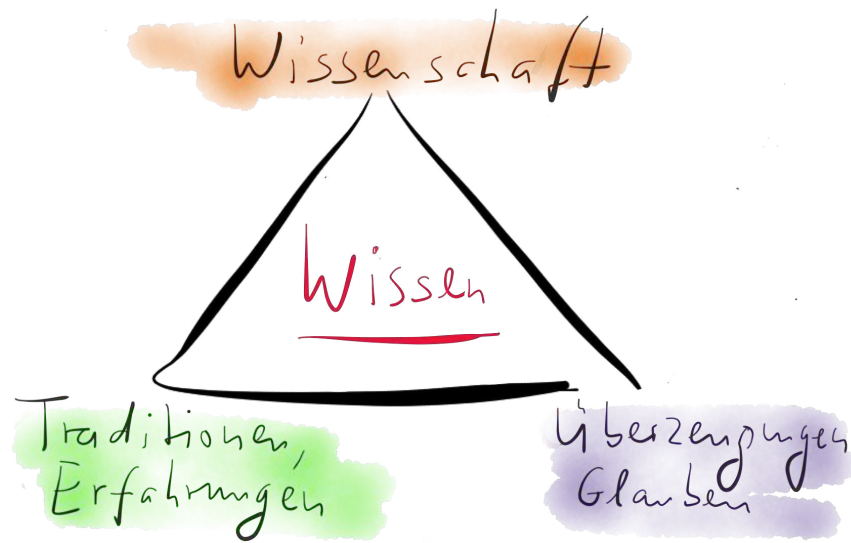 Wissenschaft
Wissen
Traditionen,
Erfahrungen
Überzeugungen
Glauben